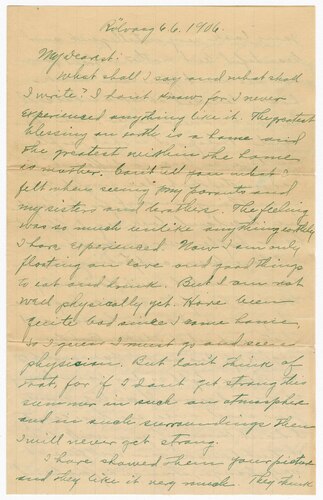 Rölvaag 6/6. 1906
My dearest:
What shall I say and what shall
I write? I don't know, for I never
experienced anything like it. The greatest
blessing on earth is a home and
the greatest within the home
is mother. Can't tell you what I
felt when seeing my parents and
my sisters and brothers. The feeling
was so much unlike anything earthly
I have experienced. Now I am only
floating on love and good things
to eat and drink. But I am not
well physically yet. Have been
quite bad since I came home,
so I guess I must go and see a
physician. But don't think of
that, for if I don't get strong this
summer in such an atmosphere
and in such surroundings then
I will never get strong.
I have showed them your picture
and they like it very much. They think